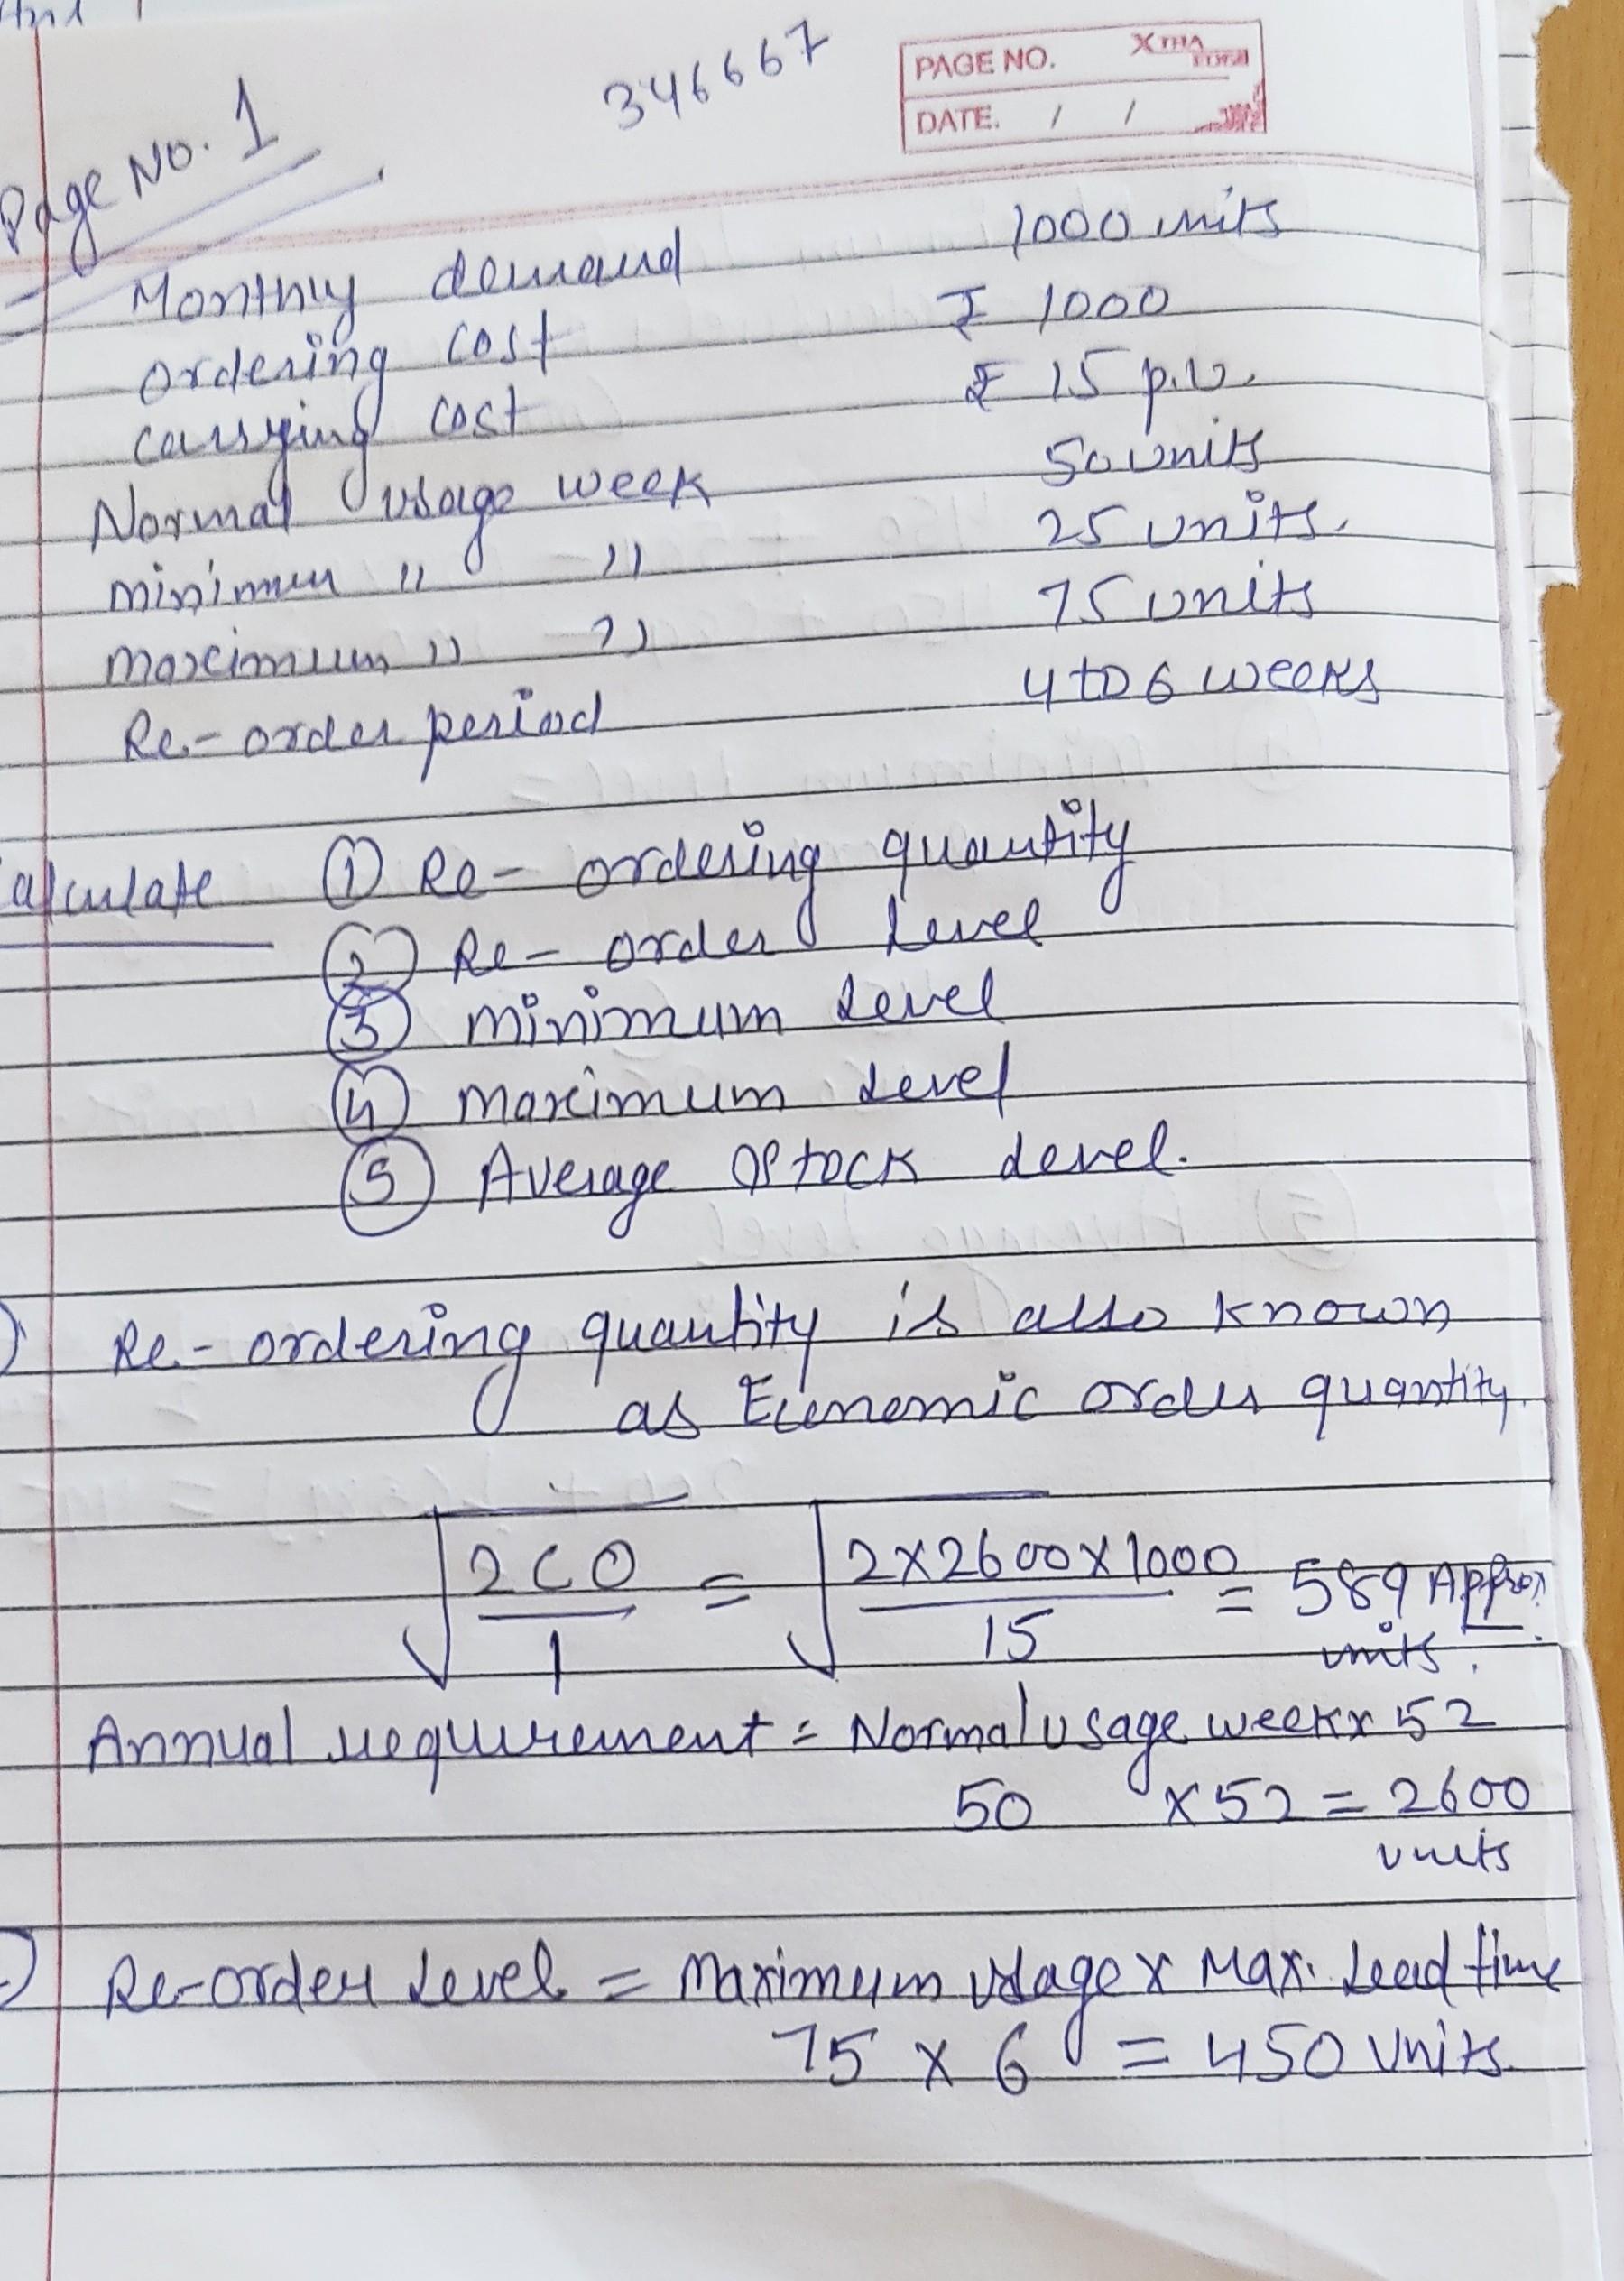 346667
PAGE NO.
DATE. / /
Page No. 1
Monthly demand 1000 units
ordering cost ₹ 1000
carrying cost ₹ 15 p.u.
Normal usage week 50 units
minimum " " 25 units.
maximum " " 75 units
Re-order period 4 to 6 weeks
alculate ① Re-ordering quantity
② Re-order Level
③ minimum Level
④ maximum Level
⑤ Average Stock Level.
Re-ordering quantity is also known
as Ecnomic order quantity.
√2CO/1 = √2×2600×1000/15 = 589 Approx.
units.
Annual requirement = Normal usage week x 52
50 x 52 = 2600
units
Re-order Level = Maximum usage x Max. Lead time
75 x 6 = 450 Units.